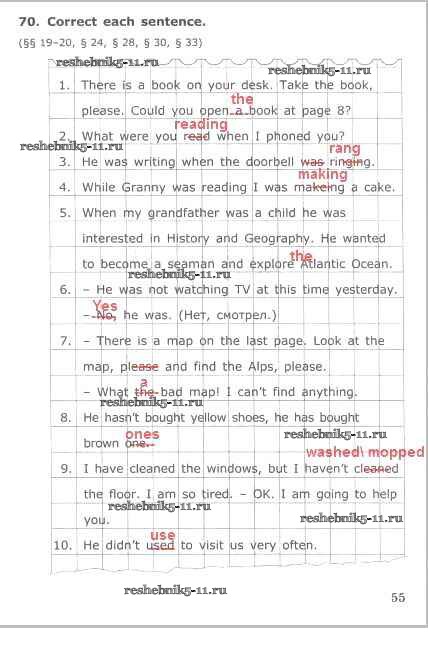 70. Correct each sentence.
(§§ 19–20, § 24, § 28, § 30, § 33)
reshebnik5-11.ru
reshebnik5-11.ru
1. There is a book on your desk. Take the book,
the
please. Could you open a book at page 8?
reading
2. What were you read when I phoned you?
reshebnik5-11.ru
rang
3. He was writing when the doorbell was ringing.
making
4. While Granny was reading I was makeing a cake.
5. When my grandfather was a child he was
interested in History and Geography. He wanted
the
to become a seaman and explore Atlantic Ocean.
reshebnik5-11.ru
6. – He was not watching TV at this time yesterday.
Yes
– No, he was. (Нет, смотрел.)
7. – There is a map on the last page. Look at the
map, please and find the Alps, please.
a
– What the bad map! I can't find anything.
reshebnik5-11.ru
8. He hasn't bought yellow shoes, he has bought
ones
brown one.
reshebnik5-11.ru
washed\ mopped
9. I have cleaned the windows, but I haven't cleaned
the floor. I am so tired. – OK. I am going to help
reshebnik5-11.ru
you.
reshebnik5-11.ru
use
10. He didn't used to visit us very often.
reshebnik5-11.ru
55